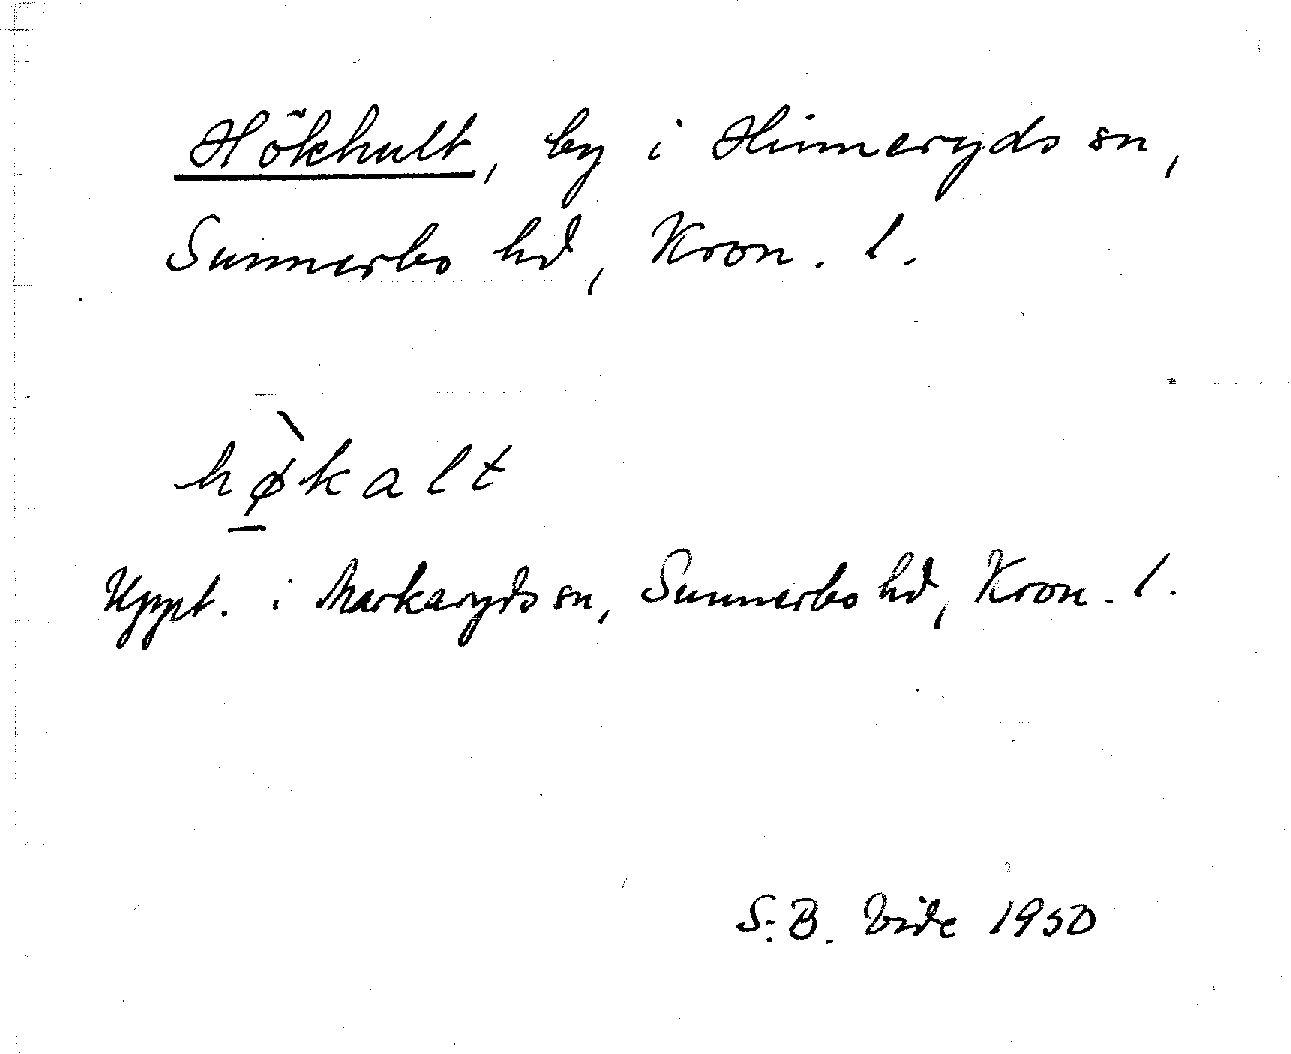 Hökhult, by i Hinneryds sn,
Sunnerbo hd, Kron. l.
hø̠̀kalt
Uppt. i Markaryds sn, Sunnerbo hd, Kron. l.
S. B. Vide 1950